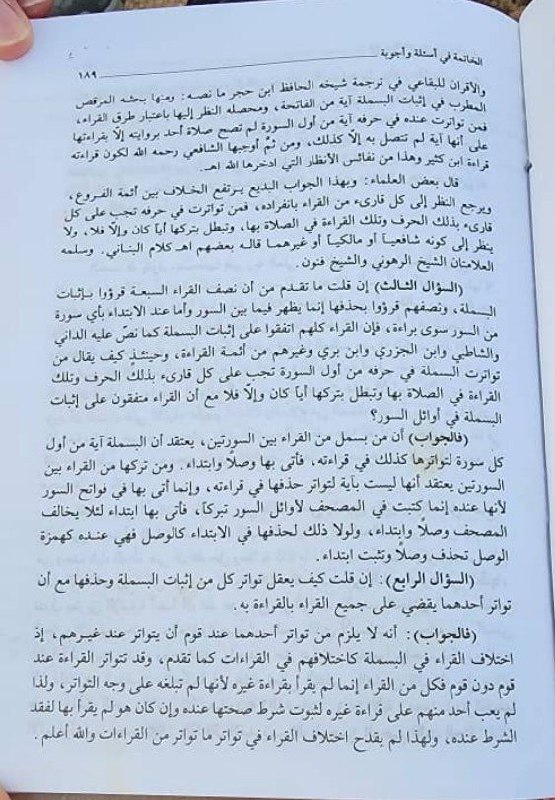 الخاتمة في أسئلة وأجوبة
١٨٩
والأقران للبقاعي في ترجمة شيخه الحافظ ابن حجر ما نصه: ومنها بحثه المرقص
المطرب في إثبات البسملة آية من الفاتحة، ومحصله النظر إليها باعتبار طرق القراء،
فمن تواترت عنده في حرفه آية من أول السورة لم تصح صلاة أحد بروايته إلّا بقراءتها
على أنها آية لم تتصل به إلّا كذلك، ومن ثم أوجبها الشافعي رحمه الله لكون قراءته
قراءة ابن كثير وهذا من نفائس الأنظار التي ادخرها الله اهـ.
قال بعض العلماء: وبهذا الجواب البديع يرتفع الخلاف بين أئمة الفروع،
ويرجع النظر إلى كل قارىء من القراء بانفراده، فمن تواترت في حرفه تجب على كل
قارىء بذلك الحرف وتلك القراءة في الصلاة بها، وتبطل بتركها أياً كان وإلّا فلا، ولا
ينظر إلى كونه شافعياً أو مالكياً أو غيرهما قاله بعضهم اهـ كلام البناني. وسلمه
العلامتان الشيخ الرهوني والشيخ فنون.
(السؤال الثالث) إن قلت ما تقدم من أن نصف القراء السبعة قرؤوا بإثبات
البسملة، ونصفهم قرؤوا بحذفها إنما يظهر فيما بين السور وأما عند الابتداء بأي سورة
من السور سوى براءة، فإن القراء كلهم اتفقوا على إثبات البسملة كما نصّ عليه الداني
والشاطبي وابن الجزري وابن بري وغيرهم من أئمة القراءة، وحينئذٍ كيف يقال من
تواترت البسملة في حرفه من أول السورة تجب على كل قارىء بذلك الحرف وتلك
القراءة في الصلاة بها وتبطل بتركها أياً كان وإلّا فلا مع أن القراء متفقون على إثبات
البسملة في أوائل السور؟
(فالجواب) أن من بسمل من القراء بين السورتين، يعتقد أن البسملة آية من أول
كل سورة لتواترها كذلك في قراءته، فأتى بها وصلاً وابتداء. ومن تركها من القراء بين
السورتين يعتقد أنها ليست بآية لتواتر حذفها في قراءته، وإنما أتى بها في فواتح السور
لأنها عنده إنما كتبت في المصحف لأوائل السور تبركاً، فأتى بها ابتداء لئلا يخالف
المصحف وصلاً وابتداء، ولولا ذلك لحذفها في الابتداء كالوصل فهي عنده كهمزة
الوصل تحذف وصلاً وتثبت ابتداء.
(السؤال الرابع): إن قلت كيف يعقل تواتر كل من إثبات البسملة وحذفها مع أن
تواتر أحدهما يقضي على جميع القراء بالقراءة به.
(فالجواب): أنه لا يلزم من تواتر أحدهما عند قوم أن يتواتر عند غيرهم، إذ
اختلاف القراء في البسملة كاختلافهم في القراءات كما تقدم، وقد تتواتر القراءة عند
قوم دون قوم فكل من القراء إنما لم يقرأ بقراءة غيره لأنها لم تبلغه على وجه التواتر، ولذا
لم يعب أحد منهم على قراءة غيره لثبوت شرط صحتها عنده وإن كان هو لم يقرأ بها لفقد
الشرط عنده، ولهذا لم يقدح اختلاف القراء في تواتر ما تواتر من القراءات والله أعلم.